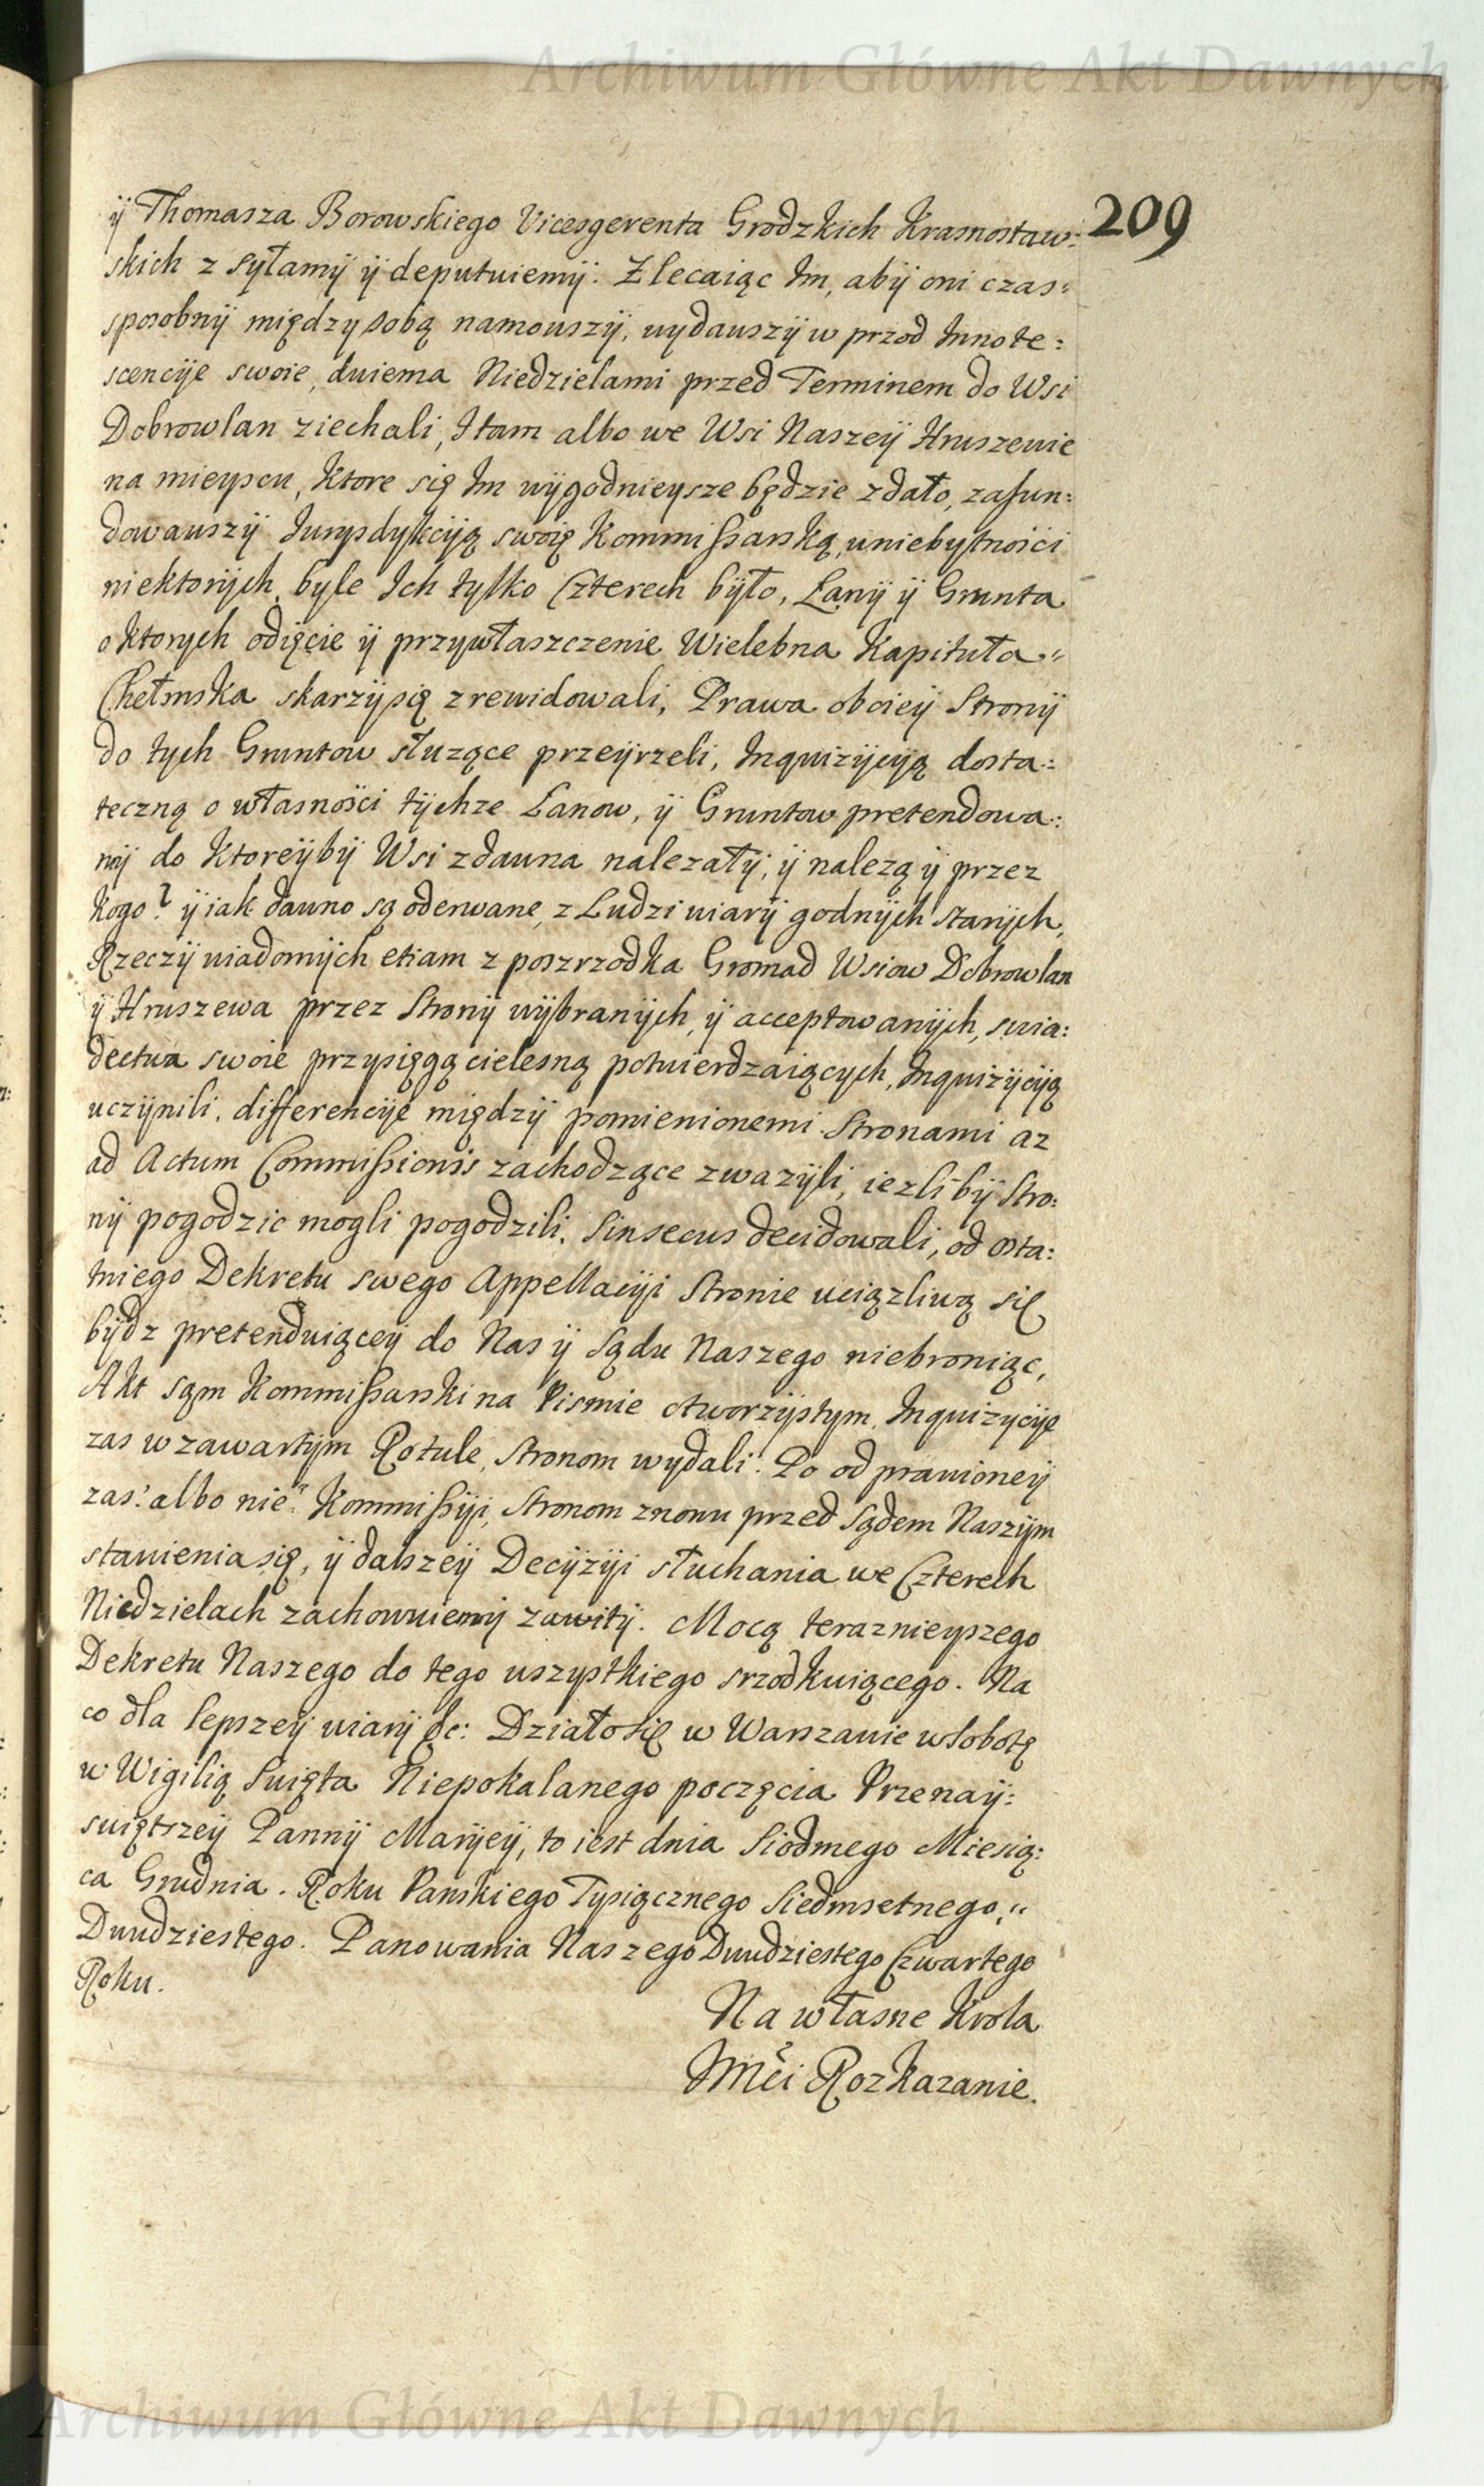 Archiwum Główne Akt Dawnych
209
ÿ Thomasza Borowskiego Vicesgerenta Grodzkich Krasnostaw:
skich z syłamÿ ÿ deputuiemÿ. Zlecaiąc Im, abÿ oni czas
sposobnÿ między sobą namowszÿ, wydawszÿ w przod Innote:
scencÿe swoie, dwiema Niedzielami przed Terminem do Wsi
Dobrowlan ziechali, Itam albo we Wsi Naszeÿ Hruszewie
na mieyscu, ktore się Im wÿgodnieysze będzie zdało, zafun:
dowawszÿ Jurysdykcÿą swoię Kommissarską, wniebytności
niektorÿch, byle Ich tylko Czterech bÿło, Łanÿ ÿ Grunta
o ktorych odięcie ÿ przywłaszczenie Wielebna Kapituła
Chełmska skarzÿ się zrewidowali, Prawa oboieÿ Stronÿ
do tych Gruntow słuzące przeÿrzeli, Inquizÿcÿą dosta:
teczną o własności tÿchze Łanow, ÿ Gruntow pretendowa:
nÿ do ktoreÿ bÿ Wsi zdawna nalezałÿ, ÿ nalezą ÿ przez
kogo? ÿ iak dawno są oderwane, z Ludzi wiarÿ godnÿch starÿch,
Rzeczÿ wiadomÿch etiam z poszrzodka Gromad Wsiow Dobrowlan
ÿ Hruszewa przez Stronÿ wÿbranÿch, ÿ acceptowanÿch, swia:
dectwa swoie przysięgą cielesną potwierdzaiących, Inquizÿcÿą
uczÿnili, differencÿe międzÿ pomienionemi Stronami az
ad Actum Commissionis zachodzące zwazÿli, iezli bÿ Stro:
nÿ pogodzic mogli pogodzili, Sinsecus decidowali, od osta:
tniego Dekretu swego Appellacÿi Stronie uciązliwą się
bÿdz pretenduiąceÿ do Nas ÿ Sądu Naszego niebroniąc,
Akt sąm Kommissarski na Pismie otworzÿstym, Inquizycÿe
zas w zawartÿm Rotule, Stronom wydali. Po odprawioneÿ
zas? albo nie? Kommissÿi, Stronom znowu przed Sądem Naszÿm
stawienia się, ÿ dalszeÿ Decÿzÿi słuchania we Czterech
Niedzielach zachowuiemÿ zawitÿ. Mocą teraznieyszego
Dekretu Naszego do tego wszystkiego srzodkuiącego. Na
co dla lepszeÿ wiarÿ &c: Działo się w Warszawie w Sobotę
w Wigilią Swięta Niepokalanego poczęcia Przenaÿ:
swiętszeÿ Pannÿ Marÿeÿ, to iest dnia Siodmego Miesią:
ca Grudnia. Roku Panskiego Tysiącznego Siedmsetnego,
Dwudziestego. Panowania Naszego Dwudziestego Czwartego
Roku.
Na własne Krola
JMći Rozkazanie.
Archiwum Główne Akt Dawnych